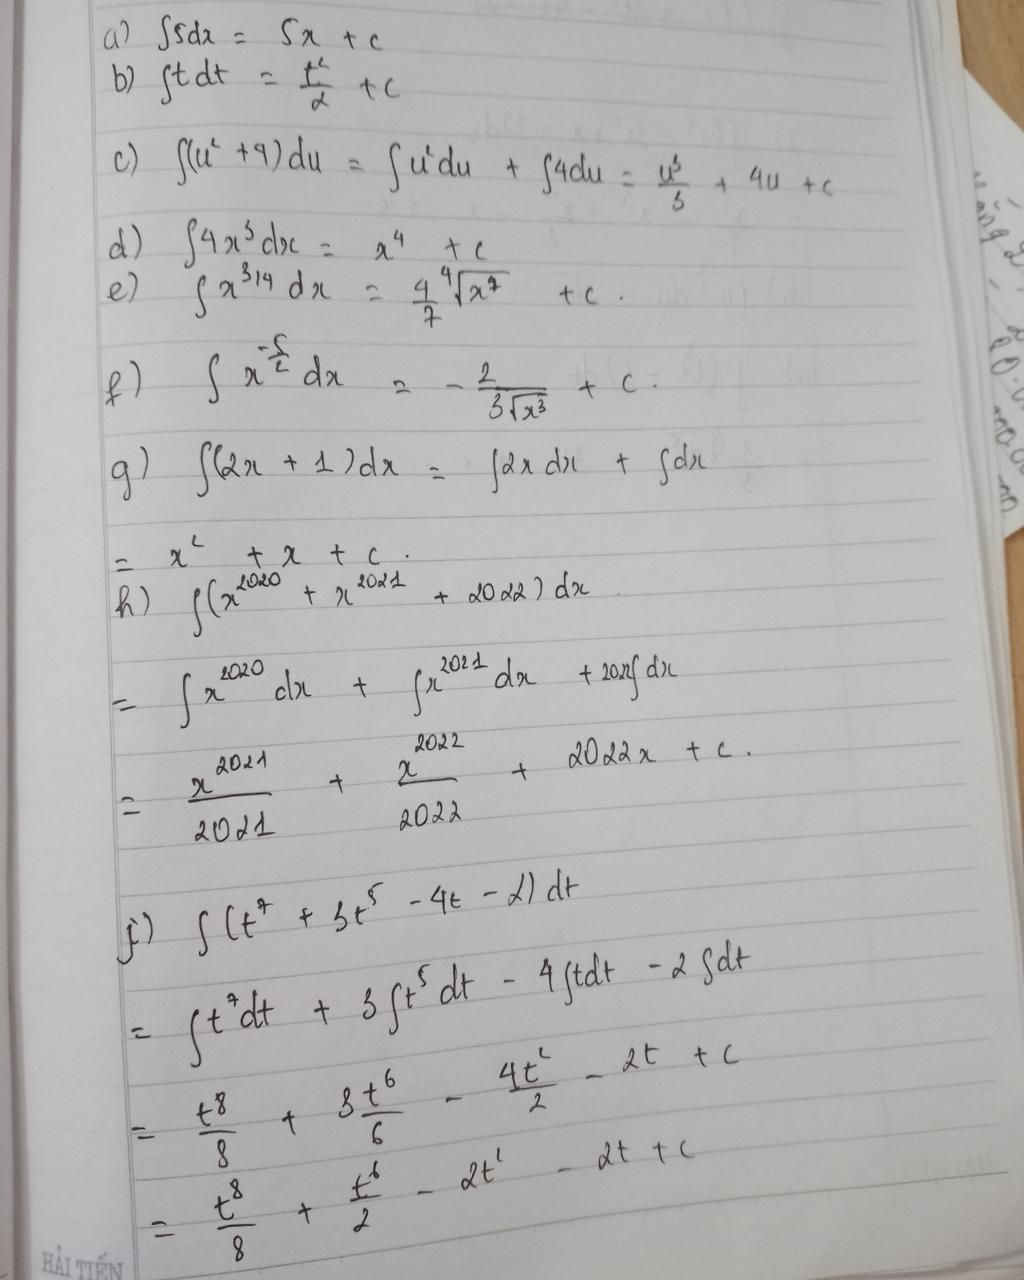 a) ∫5dx = 5x + c
b) ∫tdt = t²/2 + c
c) ∫(u² + 4)du = ∫u²du + ∫4du = u³/3 + 4u + c
d) ∫4x³dx = x⁴ + c
e) ∫x^(3/4) dx = 4/7 ⁴√x⁷ + c.
f) ∫ x^(-5/2) dx = - 2/(3√x³) + c.
g) ∫(2x + 1)dx = ∫2x dx + ∫dx
= x² + x + c.
h) ∫(x^2020 + x^2021 + 2022) dx
= ∫x^2020 dx + ∫x^2021 dx + 2022∫dx
= x^2021/2021 + x^2022/2022 + 2022x + c.
j) ∫(t⁷ + 3t⁵ - 4t - 2) dt
= ∫t⁷dt + 3∫t⁵dt - 4∫tdt - 2∫dt
= t⁸/8 + 3 t⁶/6 - 4t²/2 - 2t + c
= t⁸/8 + t⁶/2 - 2t² - 2t + c
HẢI TIẾN